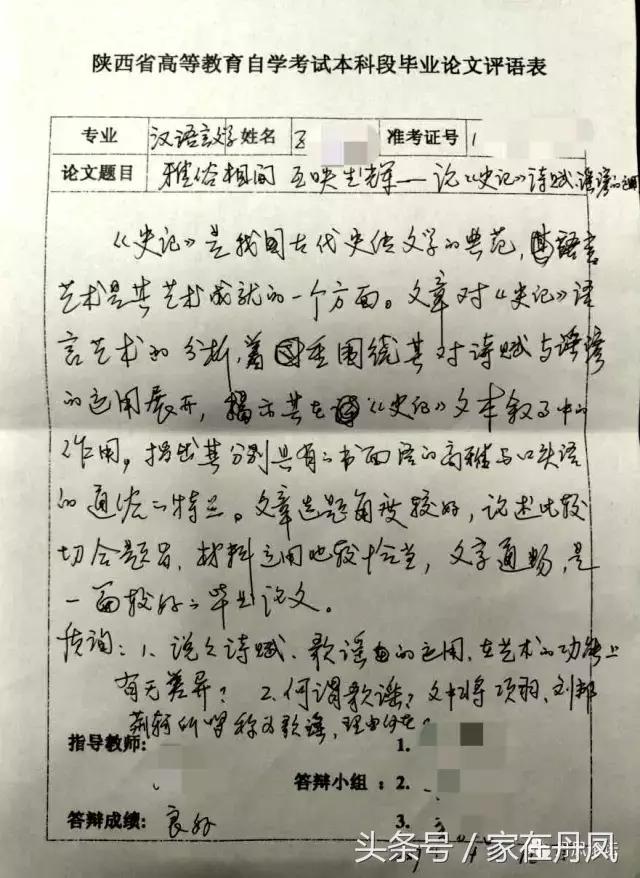 陕西省高等教育自学考试本科段毕业论文评语表
专业 汉语言文学 姓名 准考证号 1
论文题目 雅俗相间 互映生辉——论《史记》诗赋、谣谚的运用
《史记》是我国古代史传文学的典范,其语言
艺术是其艺术成就的一个方面。文章对《史记》语
言艺术的分析,着重围绕其对诗赋与谣谚
的运用展开,揭示其在《史记》文本叙事中的
作用,指出其分别具有的书面语的高雅与口头语
的通俗的特点。文章选题角度较好,论述比较
切合题旨,材料运用也较恰当,文字通畅,是
一篇较好的毕业论文。
质询:1、说说诗赋、歌谣的运用,在艺术的功能上
有无差异?2、何谓歌谣?文中将项羽、刘邦
荆轲所唱称为歌谣,理由何在?
指导教师: 1.
答辩小组: 2.
答辩成绩: 良好 3.
头条号/家在丹凤